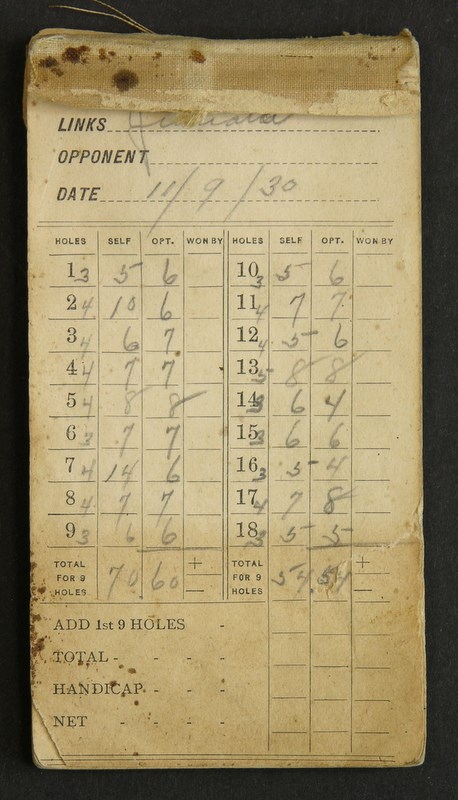 LINKS
OPPONENT
DATE 11/9/30
HOLES SELF OPT. WON BY HOLES SELF OPT. WON BY
1 3 5 6 10 3 5 6
2 4 10 6 11 4 7 7
3 4 6 7 12 4 5 6
4 4 7 7 13 5 8 8
5 4 8 8 14 3 6 4
6 3 7 7 15 3 6 6
7 4 14 6 16 3 5 4
8 4 7 7 17 4 7 8
9 3 6 6 18 3 5 5
TOTAL + TOTAL +
FOR 9 70 60 FOR 9 54 54
HOLES — HOLES —
ADD 1st 9 HOLES -
TOTAL - - - -
HANDICAP - - - -
NET - - - -